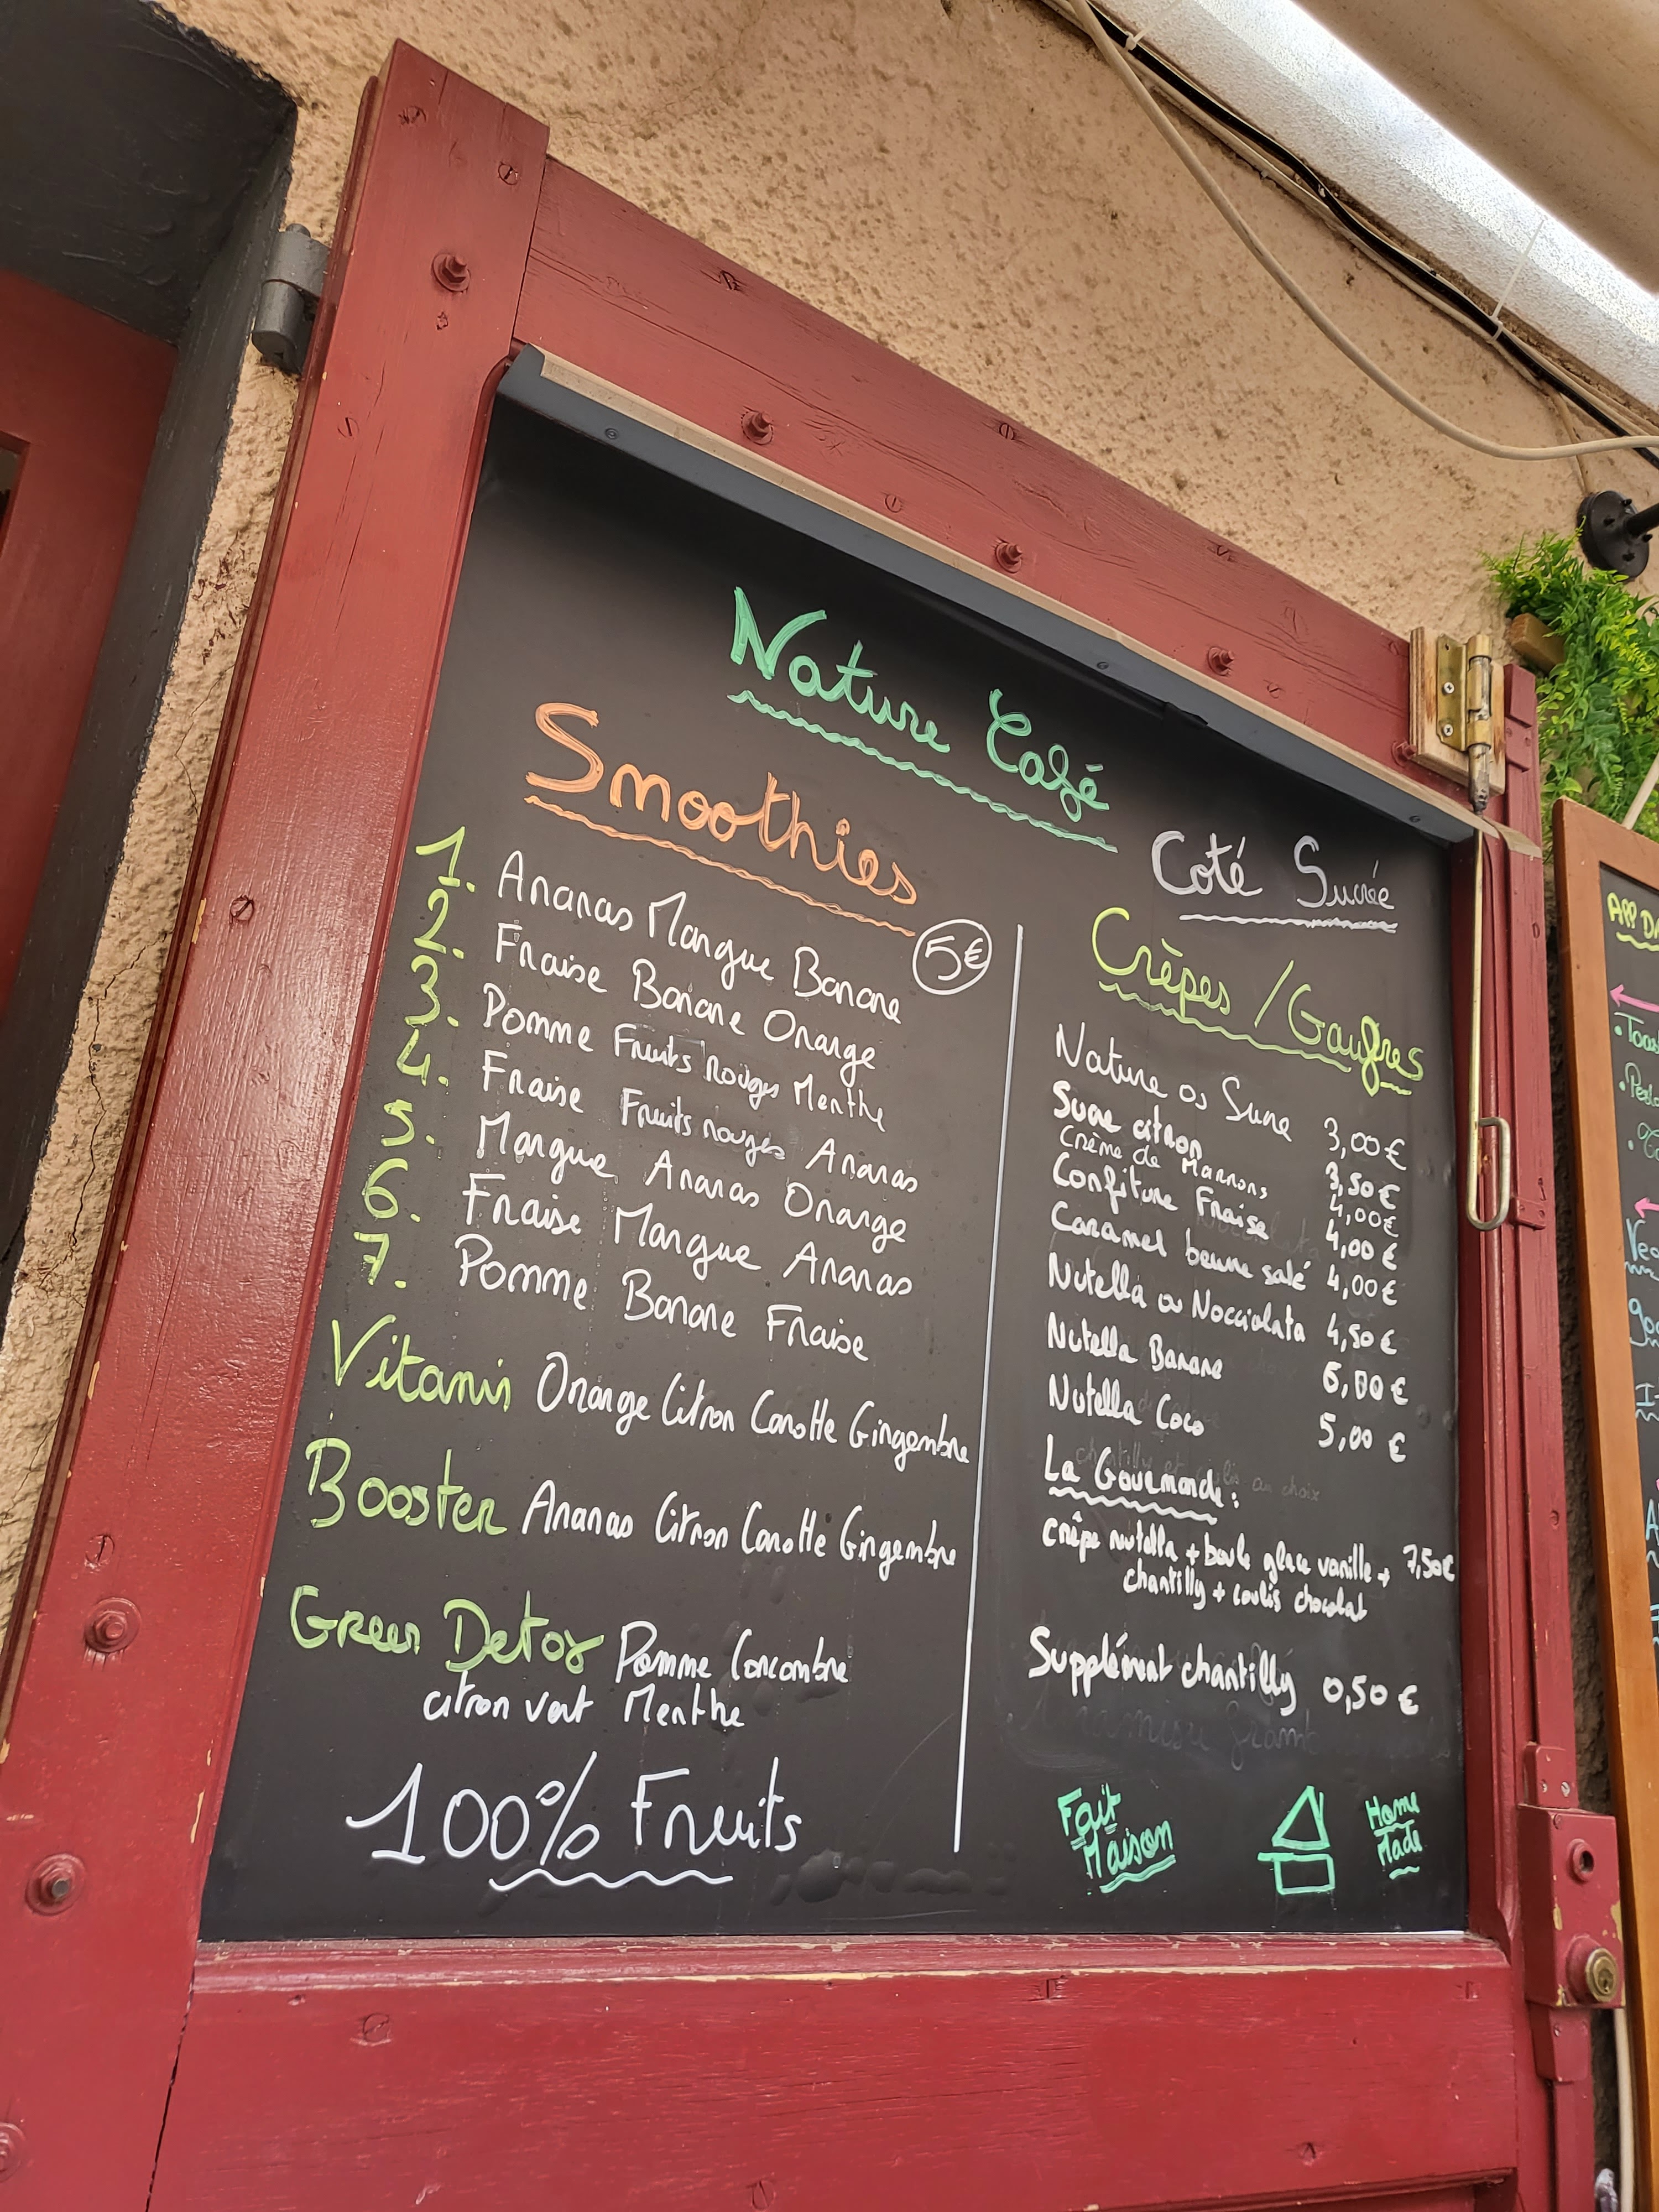 Nature Café
Smoothies
5€
1. Ananas Mangue Banane
2. Fraise Banane Orange
3. Pomme Fruits Rouges Menthe
4. Fraise Fruits rouges Ananas
5. Mangue Ananas Orange
6. Fraise Mangue Ananas
7. Pomme Banane Fraise
Vitamin Orange Citron Carotte Gingembre
Booster Ananas Citron Carotte Gingembre
Green Detox Pomme Concombre
citron vert Menthe
100% Fruits
Coté Sucrée
Crêpes / Gaufres
Nature ou Sucre 3,00 €
Sucre citron 3,50 €
Crème de Marrons 4,00€
Confiture Fraise 4,00 €
Caramel beurre salé 4,00 €
Nutella ou Nocciolata 4,50 €
Nutella Banane 6,00 €
Nutella Coco 5,00 €
La Gourmande :
crêpe nutella + boule glace vanille + 7,50€
chantilly + coulis chocolat
Supplément chantilly 0,50 €
Fait
Maison
Home
Made